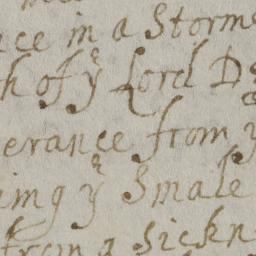 ce in a Storme
h of yͤ Lord D
erance from y
ing yͤ Smale
from a Sickn